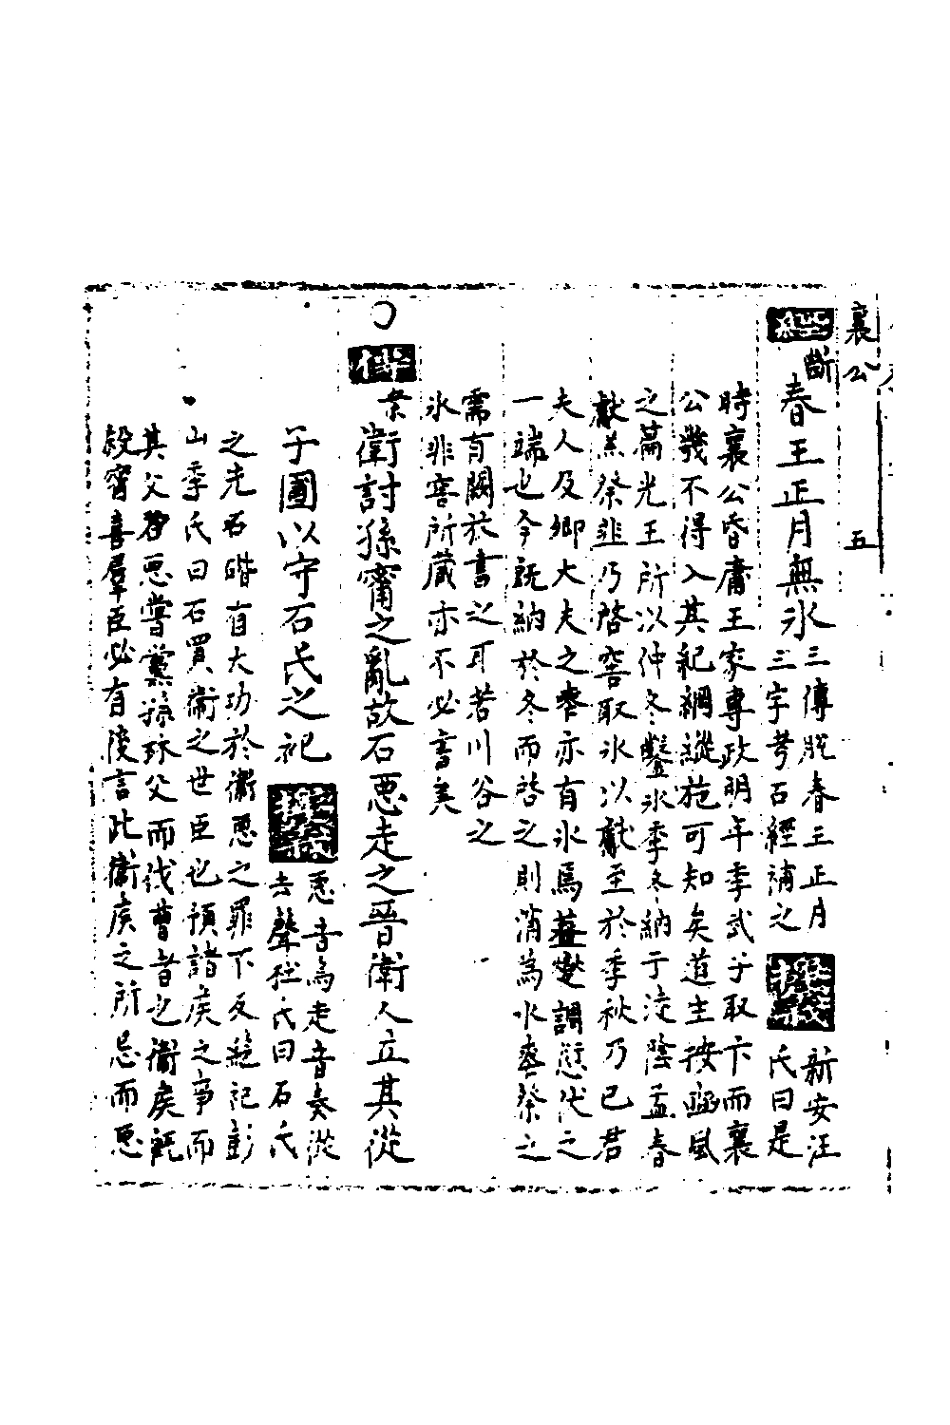 襄公 五
經
斷
春王正月無冰
三傳脫春王正月
三字考石經補之
纂義
新安汪
氏曰是
時襄公昏庸王家專政明年季武子取卞而襄
公幾不得入其紀綱縱弛可知矣道主按豳風
之篇先王所以仲冬鑿冰季冬納于凌陰孟春
獻羔祭韭乃啓窖取冰以獻至於季秋乃已君
夫人及卿大夫之喪亦有冰焉 謂愆伏之
一端也今既納於冬而啓之則消為水喪祭之
需有闕於書之可若川谷之
冰非窖所藏亦不必言矣
○
傳
衛討孫甯之亂故石惡走之晉衛人立其從
子圃以守石氏之祀
纂義
惡音烏走音奏從
去聲杜氏曰石氏
之先石碏有大功於衛惡之罪不及絕祀彭
山季氏曰石買衛之世臣也預諸侯之事而
其父 惡嘗黨孫林父而伐曹者也衛侯既
殺甯喜羣臣必有後言此衛侯之所忌而惡